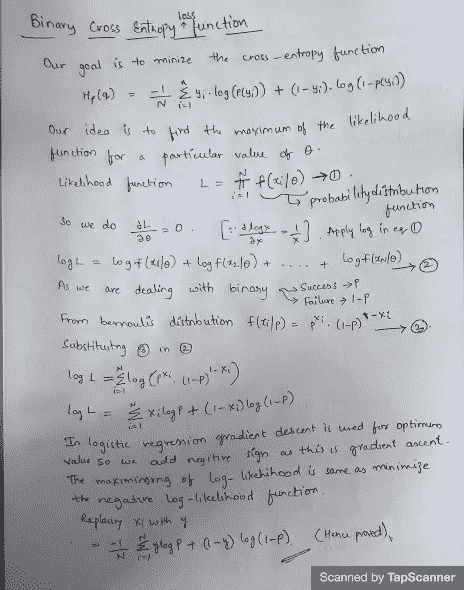 Binary Cross Entropy loss function
Our goal is to minize the cross-entropy function
Hp(q) = -1/N Σ_{i=1}^{n} yi·log(p(yi)) + (1-yi)·log(1-p(yi))
Our idea is to find the maximum of the likelihood
function for a particular value of θ.
Likelihood function L = π_{i=1}^{N} f(xi/θ) → ①.
↳ probability distribution
function
So we do ∂L/∂θ = 0. [∵ ∂logx/∂x = 1/x]. Apply log in eq ①
log L = log f(x1/θ) + log f(x2/θ) + ..... + log f(xn/θ) → ②
As we are dealing with binary → Success → P
→ Failure → 1-P
From bernoulis distribution f(xi/p) = p^xi · (1-p)^1-xi → ③.
Substituitng ③ in ②
log L = Σ_{i=1}^{N} log (p^xi · (1-p)^1-xi)
log L = Σ_{i=1}^{N} xi log P + (1-xi) log (1-P)
In logistic regression gradient descent is used for optimum
value so we add negitive sign as this is gradient ascent.
The maximinging of log-likehihood is same as minimize
the negative log-likelihood function.
Replacing xi with y
= -1/N Σ_{i=1}^{N} y log P + (1-y) log (1-P). (Hence proved),
Scanned by TapScanner